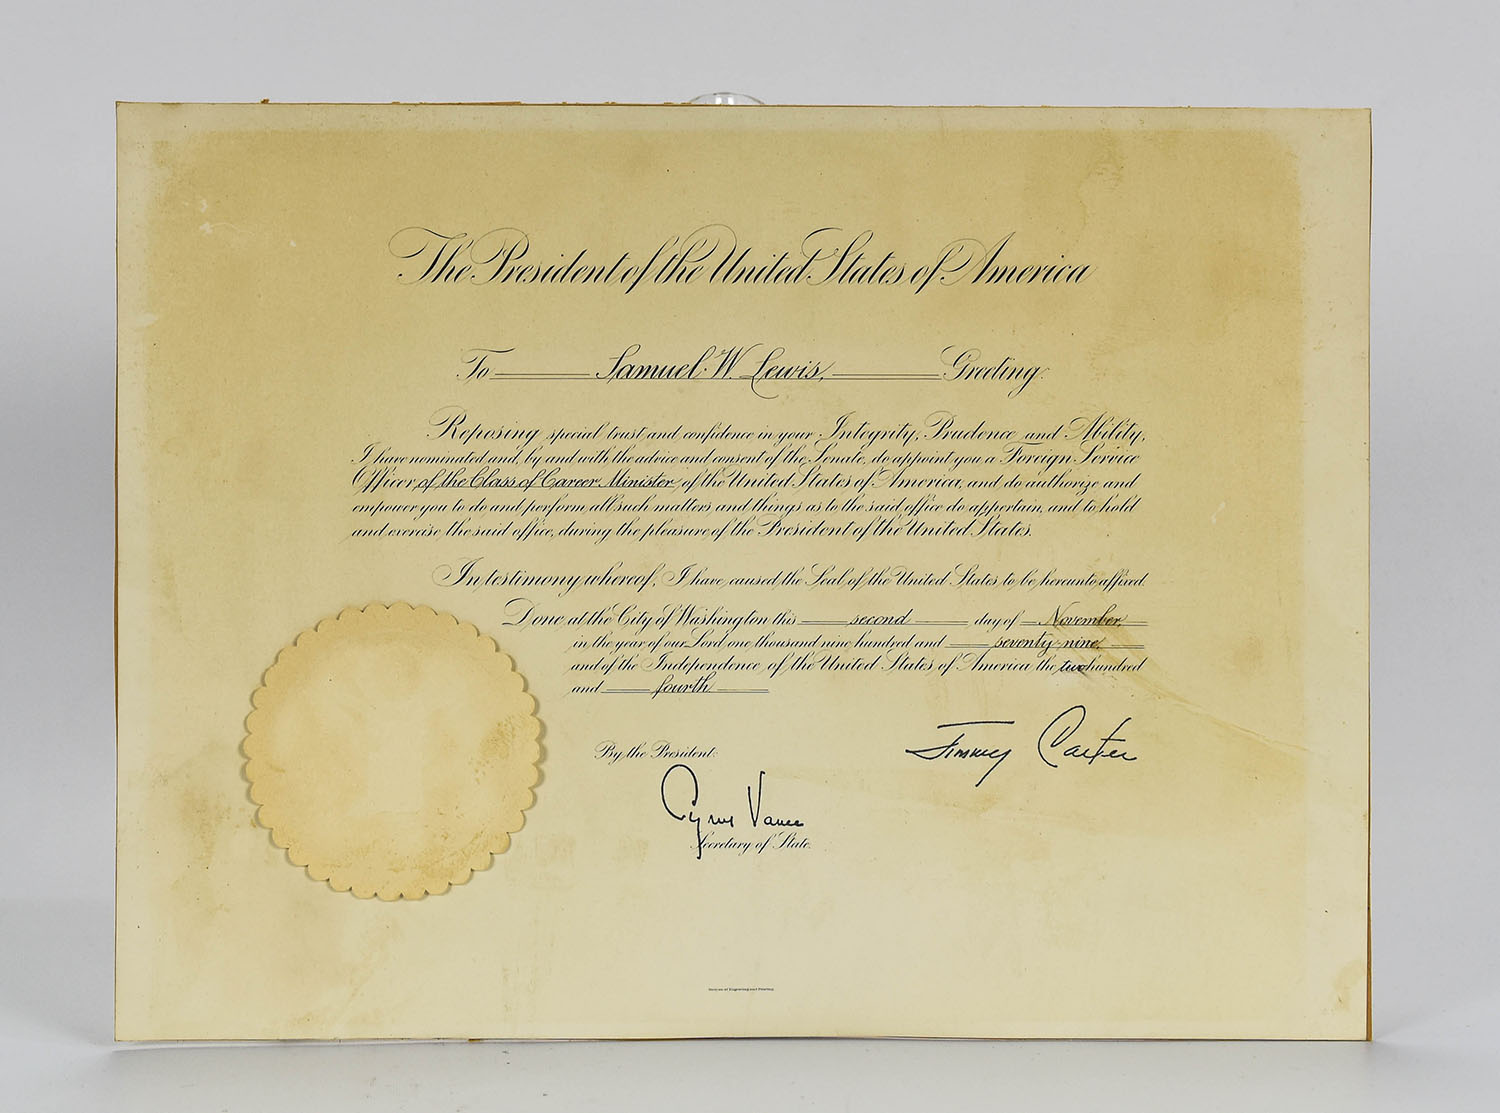 The President of the United States of America
To Samuel W. Lewis, Greeting:
Reposing special trust and confidence in your Integrity, Prudence and Ability,
I have nominated and, by and with the advice and consent of the Senate, do appoint you a Foreign Service
Officer of the Class of Career Minister of the United States of America, and do authorize and
empower you to do and perform all such matters and things as to the said office do appertain, and to hold
and exercise the said office, during the pleasure of the President of the United States.
In testimony whereof, I have caused the Seal of the United States to be hereunto affixed.
Done at the City of Washington this second day of November,
in the year of our Lord one thousand nine hundred and seventy-nine,
and of the Independence of the United States of America the two hundred
and fourth
By the President:
Jimmy Carter
Cyrus Vance
Secretary of State.
Bureau of Engraving and Printing